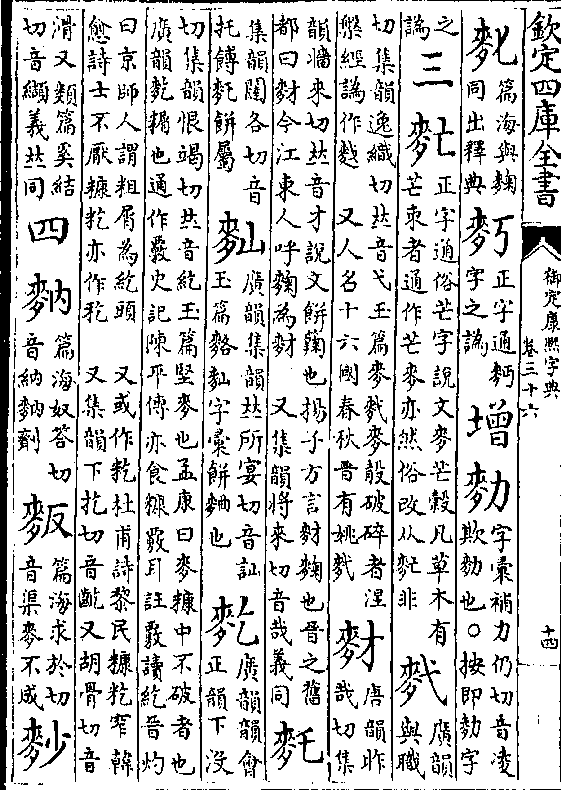 欽定四庫全書
御定康熙字典
卷三十六
十四
篇海與麴
同出釋典
正字通麪
字之譌
增
字彙補力仍切音凌
欺勑也○按即勑字
之
譌
三
正字通俗芒字說文麥芒穀凡草木有
芒朿者通作芒麥亦然俗改从非
䴬
廣韻
與職
切集韻逸織切𠀤音弋玉篇麥䴬麥䴷破碎者涅
槃經譌作 又人名十六國春秋晉有姚䴬
䴭
唐韻昨
哉切集
韻牆來切𠀤音才說文餅䵃也揚子方言䴭麴也晉之舊
都曰䴭今江東人呼麴為䴭 又集韻將來切音哉義同
集韻闥各切音
托餺餅屬
廣韻集韻𠀤所宴切音訕
玉篇字彙餅麯也
麧
廣韻韻會
正韻下沒
切集韻恨竭切𠀤音紇玉篇堅麥也孟康曰麥糠中不破者也
廣韻麧也通作覈史記陳平傳亦食糠覈耳註覈讀紇晉灼
曰京師人謂粗屑為紇頭 又或作籺杜甫詩黎民糠籺窄韓
愈詩士不厭糠籺亦作 又集韻下扢切音齕又胡骨切音
滑又類篇奚結
切音纈義𠀤同
四
篇海奴荅切
音納劑
篇海求於切
音渠麥不成
麨